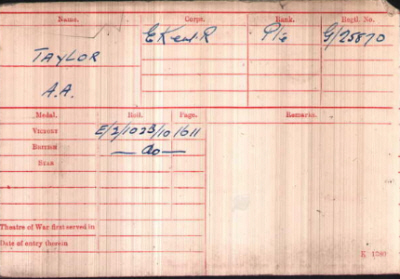 Name. Corps. Rank. Regtl. No.
TAYLOR E Kent. R Pte G/25870
A.A.
Medal. Roll. Page. Remarks.
VICTORY E/2/102B/10 1611
BRITISH — do —
STAR
Theatre of War first served in
Date of entry therein